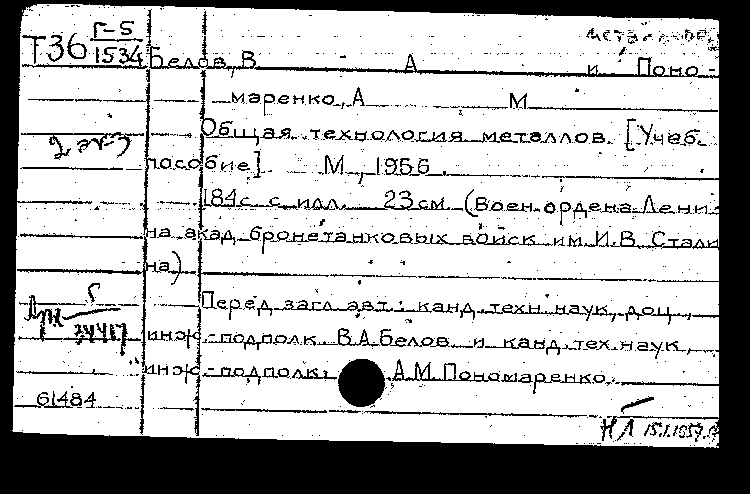 Г-5
Т36 1534
Белов, В А и Поно-
маренко, А М
Общая технология металлов. [Учеб.
пособие] М., 1956.
184с. с илл. 23см. (Воен. ордена Лени-
на акад. бронетанковых войск им. И.В. Стали-
на)
Перед загл. авт.: канд. техн. наук, доц.,
инж.-подполк. В.А. Белов и канд. тех. наук,
инж.-подполк. А.М. Пономаренко.
34417
61484
НЛ 15.1.1957